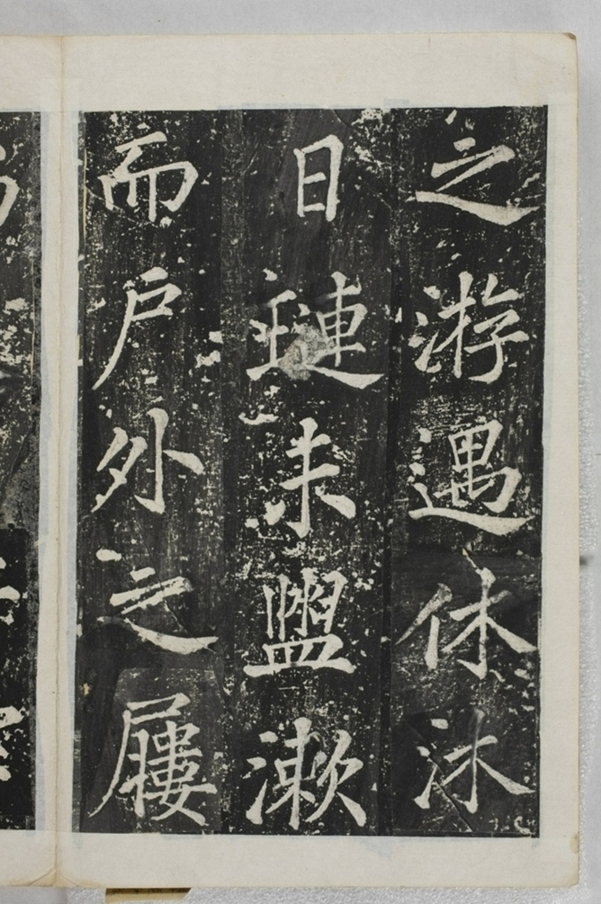 之游遇休沐
日璉未盥漱
而戶外之屨